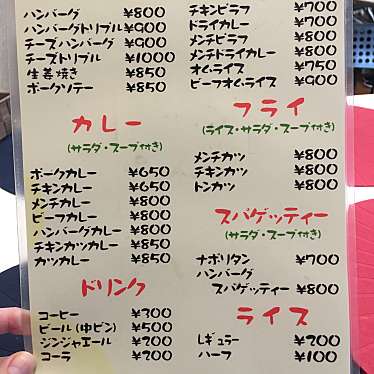 ハンバーグ ¥800
ハンバーグトリプル ¥900
チーズハンバーグ ¥900
チーズトリプル ¥1000
生姜焼き ¥850
ポークソテー ¥850
カレー
(サラダ・スープ付き)
ポークカレー ¥650
チキンカレー ¥650
メンチカレー ¥800
ビーフカレー ¥800
ハンバーグカレー ¥800
チキンカツカレー ¥850
カツカレー ¥850
ドリンク
コーヒー ¥300
ビール(中ビン) ¥500
ジンジャエール ¥200
コーラ ¥200
チキンピラフ ¥700
ドライカレー ¥700
メンチピラフ ¥800
メンチドライカレー ¥800
オムライス ¥750
ビーフオムライス ¥900
フライ
(ライス・サラダ・スープ付き)
メンチカツ ¥800
チキンカツ ¥800
トンカツ ¥800
スパゲッティー
(サラダ・スープ付き)
ナポリタン ¥700
ハンバーグ
スパゲッティー ¥800
ライス
レギュラー ¥200
ハーフ ¥100